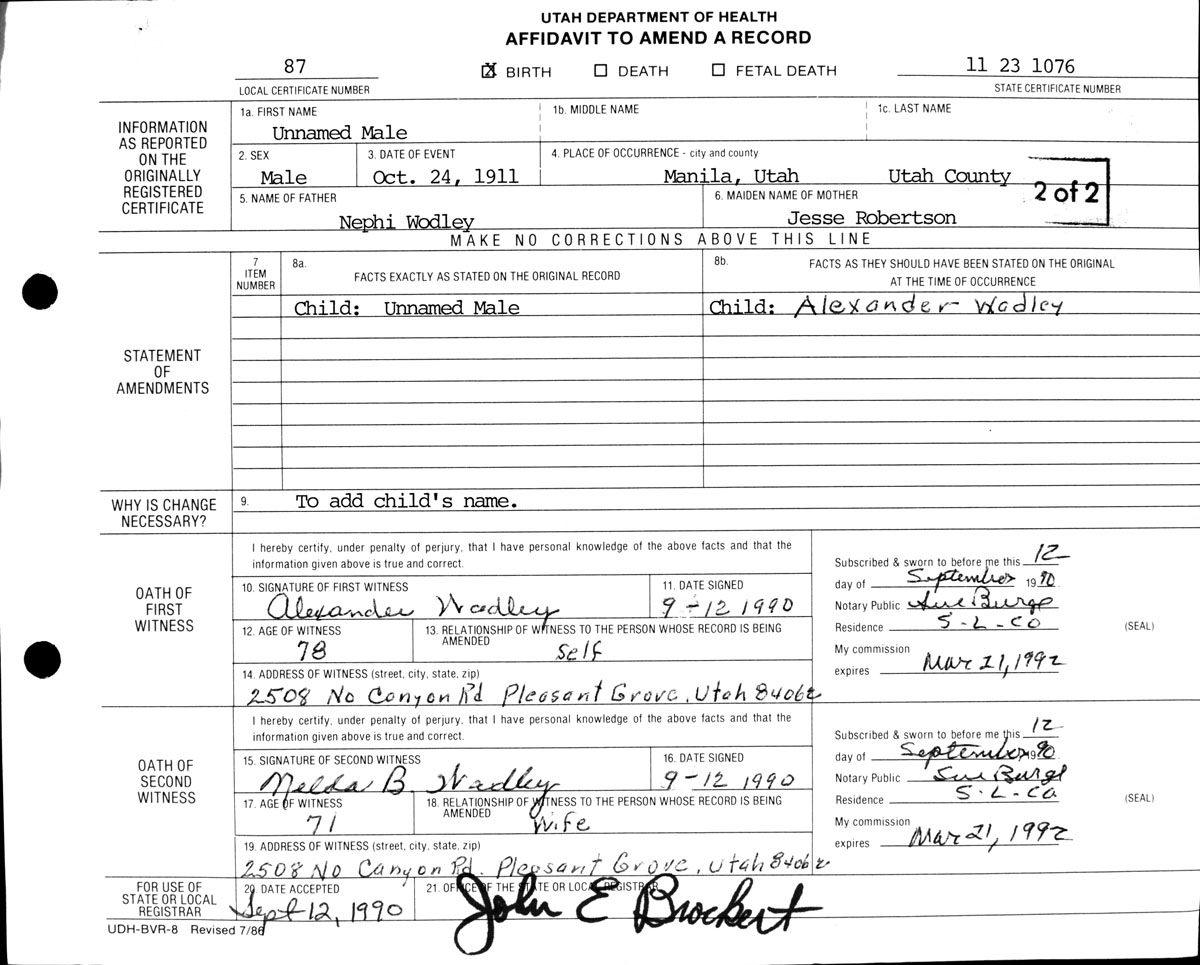 UTAH DEPARTMENT OF HEALTH
AFFIDAVIT TO AMEND A RECORD
87
LOCAL CERTIFICATE NUMBER
X BIRTH DEATH FETAL DEATH
11 23 1076
STATE CERTIFICATE NUMBER
INFORMATION AS REPORTED ON THE ORIGINALLY REGISTERED CERTIFICATE
1a. FIRST NAME 1b. MIDDLE NAME 1c. LAST NAME
Unnamed Male
2. SEX 3. DATE OF EVENT 4. PLACE OF OCCURRENCE - city and county
Male Oct. 24, 1911 Manila, Utah Utah County
2 of 2
5. NAME OF FATHER 6. MAIDEN NAME OF MOTHER
Nephi Wodley Jesse Robertson
MAKE NO CORRECTIONS ABOVE THIS LINE
STATEMENT OF AMENDMENTS
7 ITEM NUMBER
8a. FACTS EXACTLY AS STATED ON THE ORIGINAL RECORD
8b. FACTS AS THEY SHOULD HAVE BEEN STATED ON THE ORIGINAL
AT THE TIME OF OCCURRENCE
Child: Unnamed Male Child: Alexander Wadley
WHY IS CHANGE NECESSARY?
9. To add child's name.
OATH OF FIRST WITNESS
I hereby certify, under penalty of perjury, that I have personal knowledge of the above facts and that the
information given above is true and correct.
10. SIGNATURE OF FIRST WITNESS 11. DATE SIGNED
Alexander Wadley 9-12 1990
12. AGE OF WITNESS 13. RELATIONSHIP OF WITNESS TO THE PERSON WHOSE RECORD IS BEING
AMENDED
78 Self
14. ADDRESS OF WITNESS (street, city, state, zip)
2508 No Canyon Rd Pleasant Grove, Utah 84062
Subscribed & sworn to before me this 12
day of September 1990
Notary Public Sue Burge
Residence S-L-CO
(SEAL)
My commission
expires Mar 21, 1992
OATH OF SECOND WITNESS
I hereby certify, under penalty of perjury, that I have personal knowledge of the above facts and that the
information given above is true and correct.
15. SIGNATURE OF SECOND WITNESS 16. DATE SIGNED
Nelda B. Wadley 9-12 1990
17. AGE OF WITNESS 18. RELATIONSHIP OF WITNESS TO THE PERSON WHOSE RECORD IS BEING
AMENDED
71 Wife
19. ADDRESS OF WITNESS (street, city, state, zip)
2508 No Canyon Rd. Pleasant Grove, Utah 84062
Subscribed & sworn to before me this 12
day of September, 1990
Notary Public Sue Burge
Residence S-L-CO
(SEAL)
My commission
expires Mar 21, 1992
FOR USE OF STATE OR LOCAL REGISTRAR
20. DATE ACCEPTED 21. OFFICE OF THE STATE OR LOCAL REGISTRAR
Sept 12, 1990 John E Brockert
UDH-BVR-8 Revised 7/86